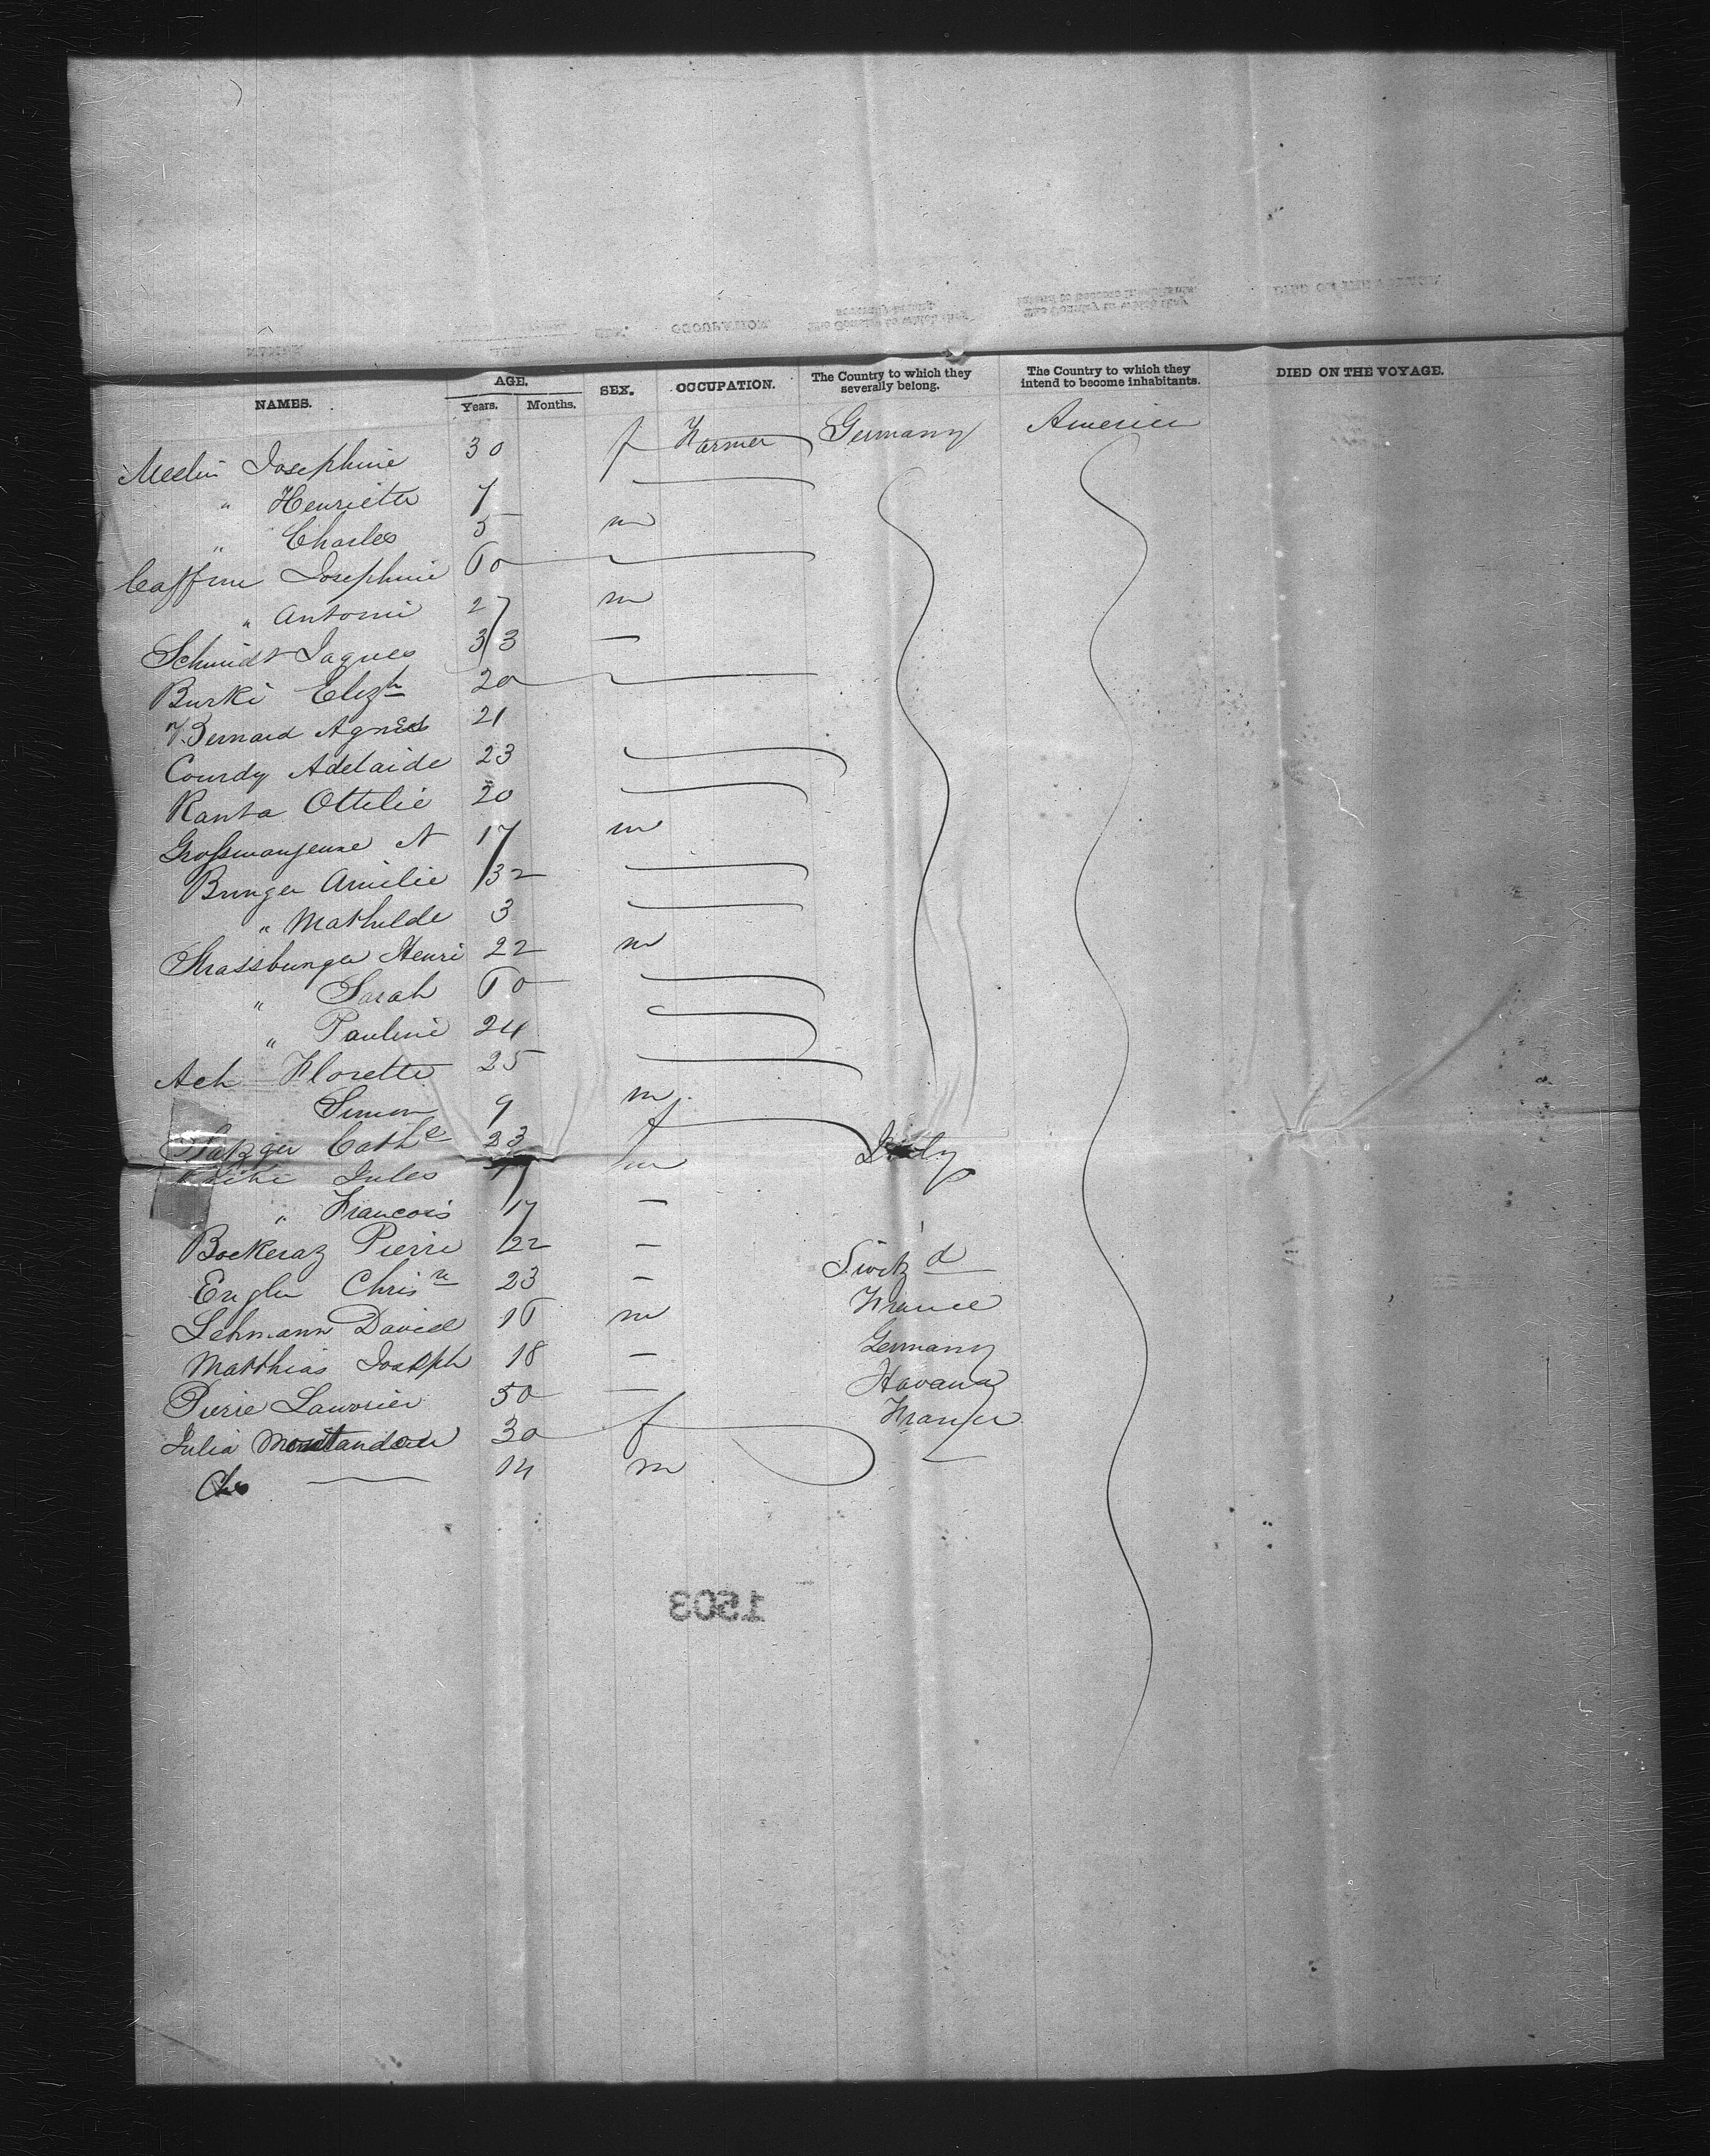 NAMES. AGE. Years. Months. SEX. OCCUPATION. The Country to which they severally belong. The Country to which they intend to become inhabitants. DIED ON THE VOYAGE.
Josephine 30 f Farmer Germany America
" Henriette 7
" Charles 5 m
Josephine 60
" Antoni 27 m
Schmidt Jaques 33 —
Burki Elizth 20
Bernard Agnes 21
Courdy Adelaide 23
Kanta Ottilie 20
N 17 m
Amilie 32
" Mathilde 3
Strassburger Henri 22 m
" Sarah 60
" Pauline 24
Ach Florette 25
Simon 9 m
Cathe 23 f
Jules m Italy
" Francois 17 —
Bockeraz Pierre 22 —
Engler Chrisn 23 — Switzd
Lehmann David 16 m France
Matthias Joseph 18 — Germany
Pierre 50 — Havana
Julia Montandon 30 f France
Chs — 14 m
1503